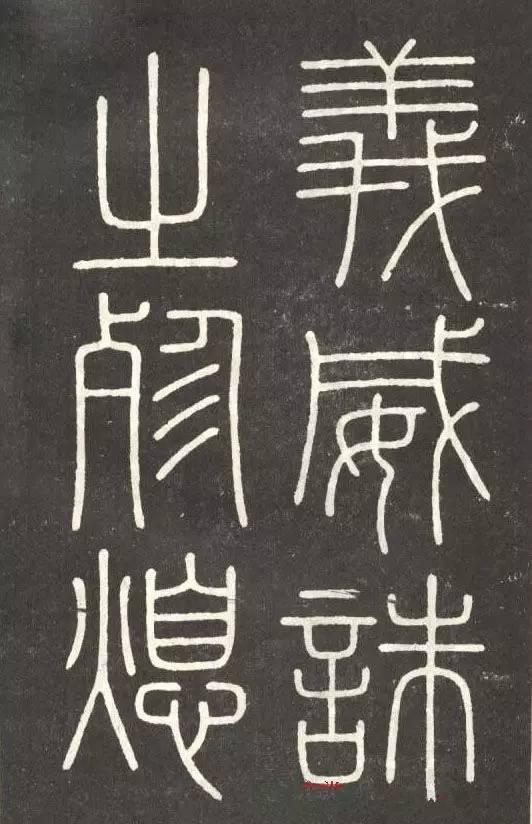 義威誅
之殄熄